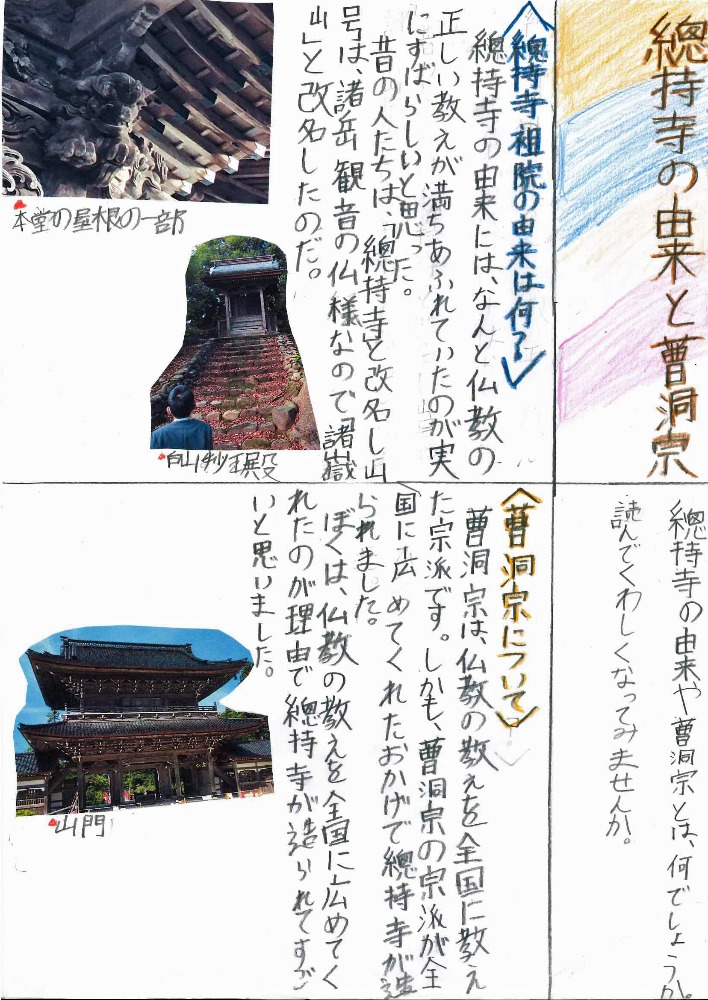 總持寺の由来と曹洞宗
總持寺の由来や曹洞宗とは、何でしょうか。
読んでくわしくなってみませんか。
〈總持寺祖院の由来は何?〉
總持寺の由来には、なんと仏教の
正しい教えが満ちあふれていたのが実
にすばらしいと思った。
昔の人たちは、「總持寺と改名し山
号は、諸岳観音の仏様なので「諸嶽
山」と改名したのだ。
本堂の屋根の一部
白山
〈曹洞宗について〉
曹洞宗は、仏教の教えを全国に教え
た宗派です。しかも、曹洞宗の宗派が全
国に広めてくれたおかげで總持寺が造
られました。
ぼくは、仏教の教えを全国に広めてく
れたのが理由で總持寺が造られてすご
いと思いました。
山門